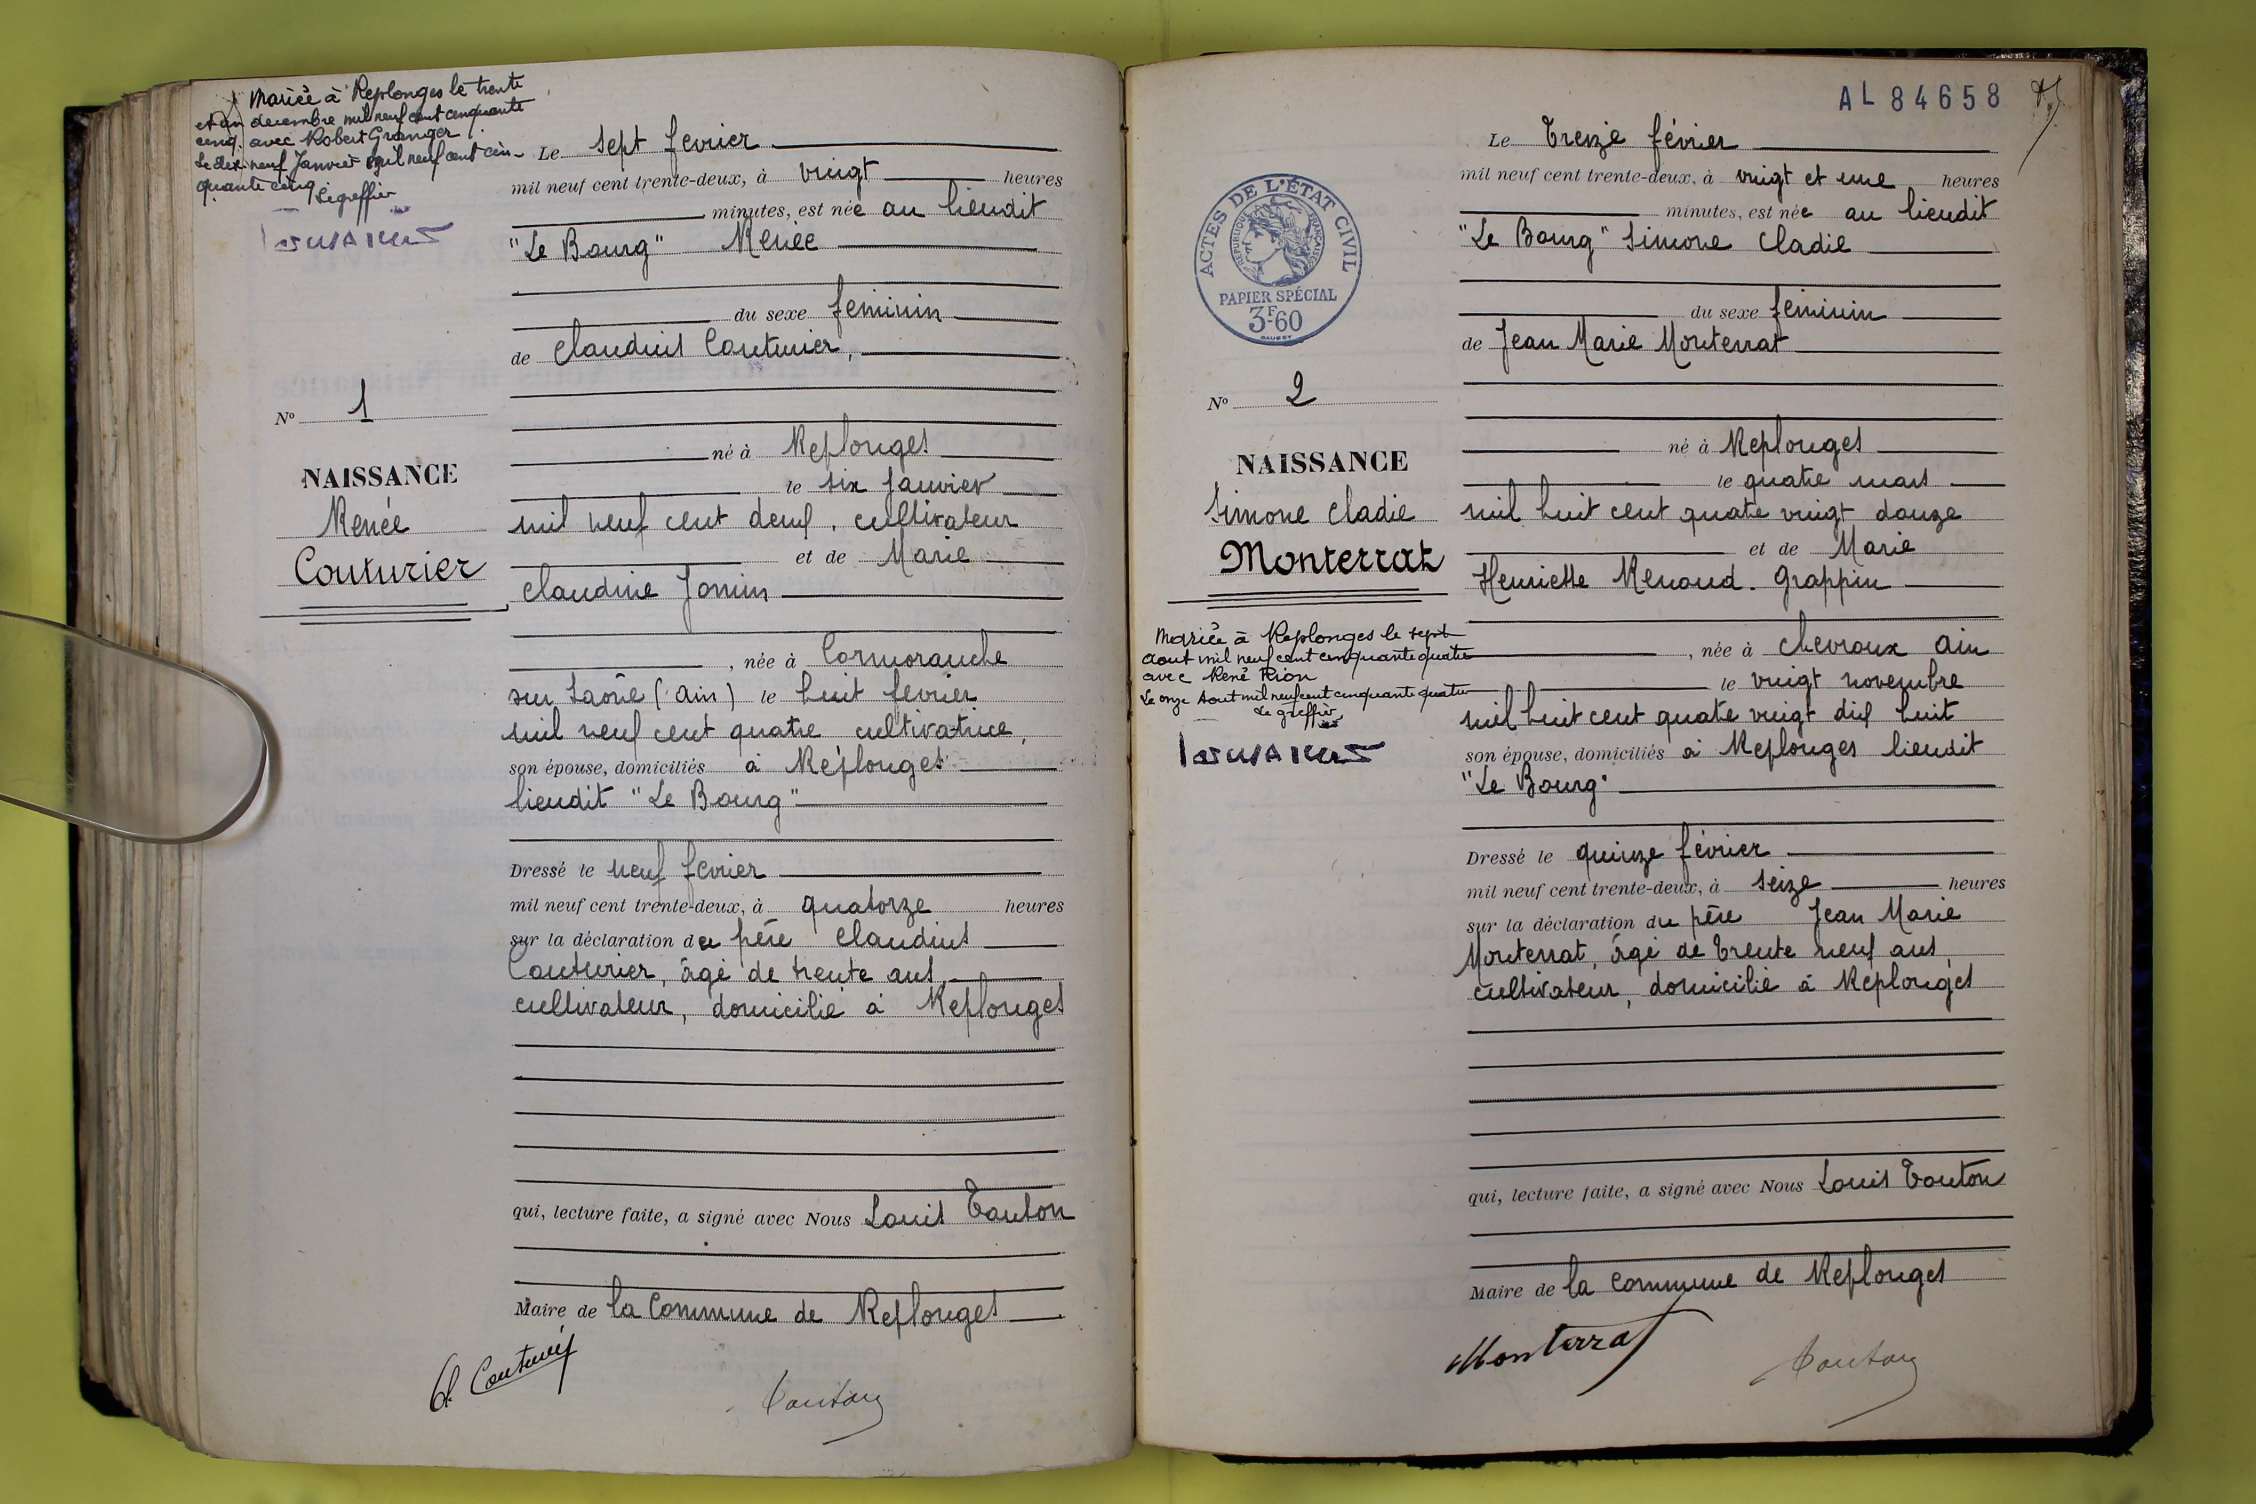 Mariée à Replonges le trente
et un decembre mil neuf cent cinquante
cinq. avec Robert Granger
Le dix neuf Janvier mil neuf cent cin-
quante cinq
Le greffier
Le sept fevrier
mil neuf cent trente-deux, à vingt heures
minutes, est née au lieudit
"Le Bourg" Renée
du sexe feminin
de Claudius Couturier,
né à Replonges
le six Janvier
mil neuf cent deux, cultivateur
et de Marie
Claudine Jomin
, née à Cormoranche
sur Saône (Ain) le huit fevrier
mil neuf cent quatre cultivatrice,
son épouse, domiciliés à Replonges
lieudit "Le Bourg"
Dressé le neuf fevrier
mil neuf cent trente-deux, à quatorze heures
sur la déclaration du père Claudius
Couturier, âgé de trente ans,
cultivateur, domicilié à Replonges
qui, lecture faite, a signé avec Nous Louis Touton
Maire de la Commune de Replonges
Cl. Couturier
Touton
N° 1
NAISSANCE
Renée
Couturier
AL 84658
ACTES DE L'ÉTAT CIVIL
RÉPUBLIQUE FRANÇAISE
PAPIER SPÉCIAL
3F60
N° 2
NAISSANCE
Simone Cladie
Monterrat
Mariée à Replonges le sept
Aout mil neuf cent cinquante quatre
avec René Rion
Le onze Aout mil neuf cent cinquante quatre
Le greffier
Le Treize février
mil neuf cent trente-deux, à vingt et une heures
minutes, est née au lieudit
"Le Bourg" Simone Cladie
du sexe féminin
de Jean Marie Monterrat
né à Replonges
le quatre mars
mil huit cent quatre vingt douze
et de Marie
Henriette Renoud-Grappin
, née à Chevroux Ain
le vingt novembre
mil huit cent quatre vingt dix huit
son épouse, domiciliés à Replonges lieudit
"Le Bourg"
Dressé le quinze février
mil neuf cent trente-deux, à seize heures
sur la déclaration du père Jean Marie
Monterrat, âgé de trente neuf ans,
cultivateur, domicilié à Replonges
qui, lecture faite, a signé avec Nous Louis Touton
Maire de la commune de Replonges
Monterrat
Touton